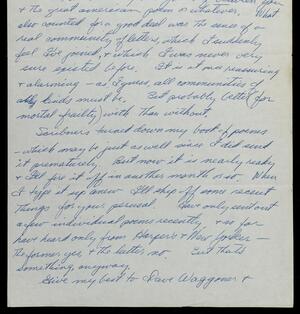 & the great american poem or whatever. What
also counted for a good deal was the sense of a
real community of letters, which I suddenly
feel I've joined, & which I was never very
sure existed before. It is at once reassuring
& alarming – as, I guess, all communities of
kinds must be. But probably better for
mortal frailty with than without.
Scribners turned down my book of poems
– which may be just as well since I did send
it prematurely. But now it is nearly ready
& I'll fire it off in another month or so. When
I type it up anew I'll ship off some recent
things for your perusal. Have only sent out
a few individual poems recently & so far
have heard only from Harper's & New Yorker –
the former yes & the latter no. But that's
something, anyway.
Give my best to Dave Waggoner &